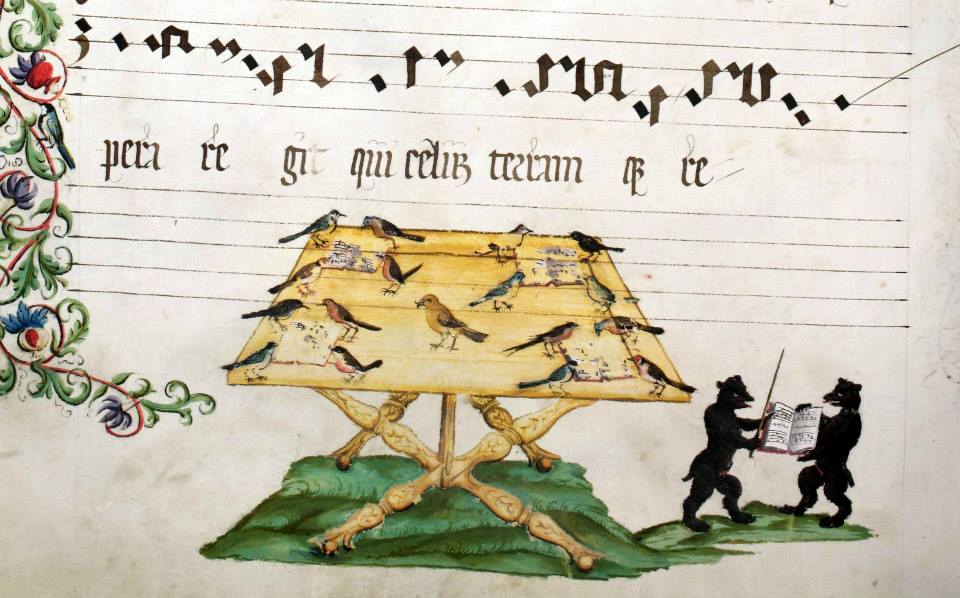 pera re git qui celuꝫ terram qꝫ re-